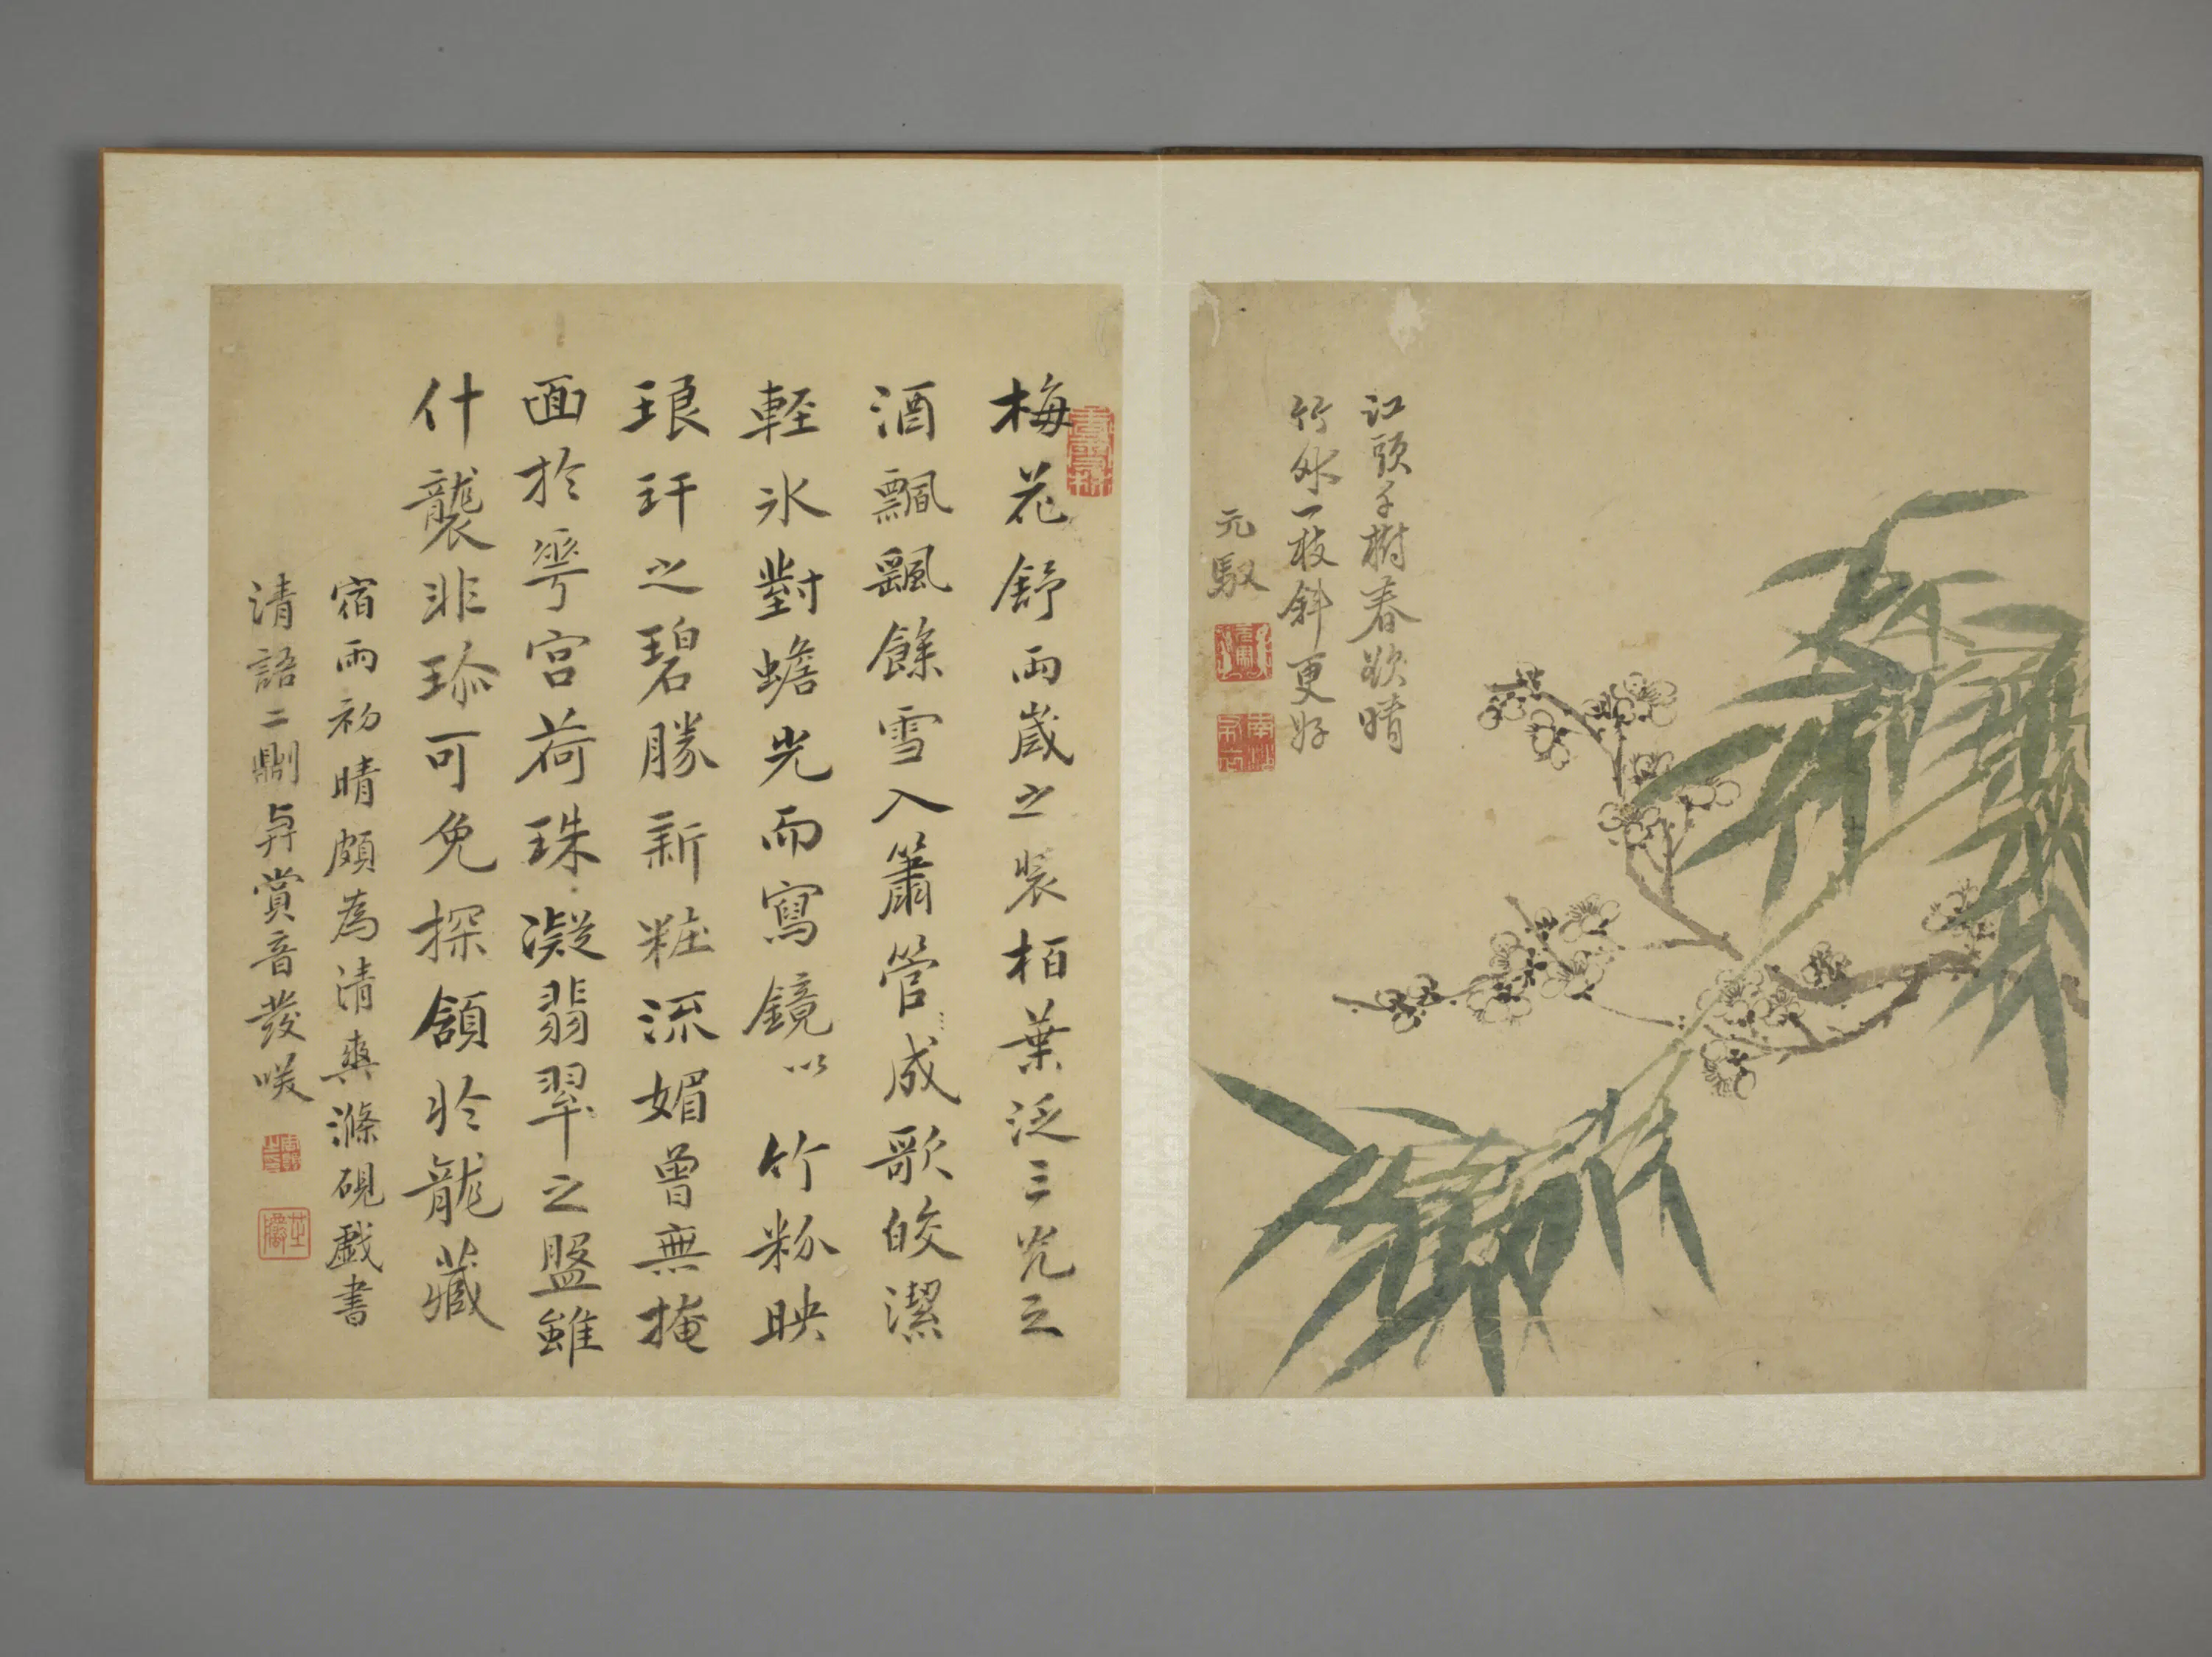 江頭千樹春欲晴
竹外一枝斜更好
元馭
梅花舒兩歲之裝栢葉泛三光之
酒飄颻餘雪入簫管成歌皎潔
輕氷對蟾光而寫鏡以竹粉映
琅玕之碧勝新粧流媚曾無掩
面於華宮荷珠凝翡翠之盤雖
什襲非珎可免探頷於龍藏
宿雨初晴頗為清爽滌硯戲書
清語二則與賞音發咲